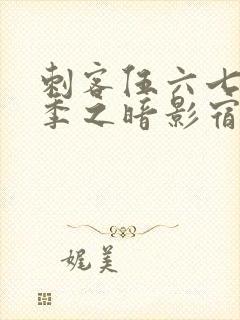 刺客伍六七
季之暗影宿
娓美